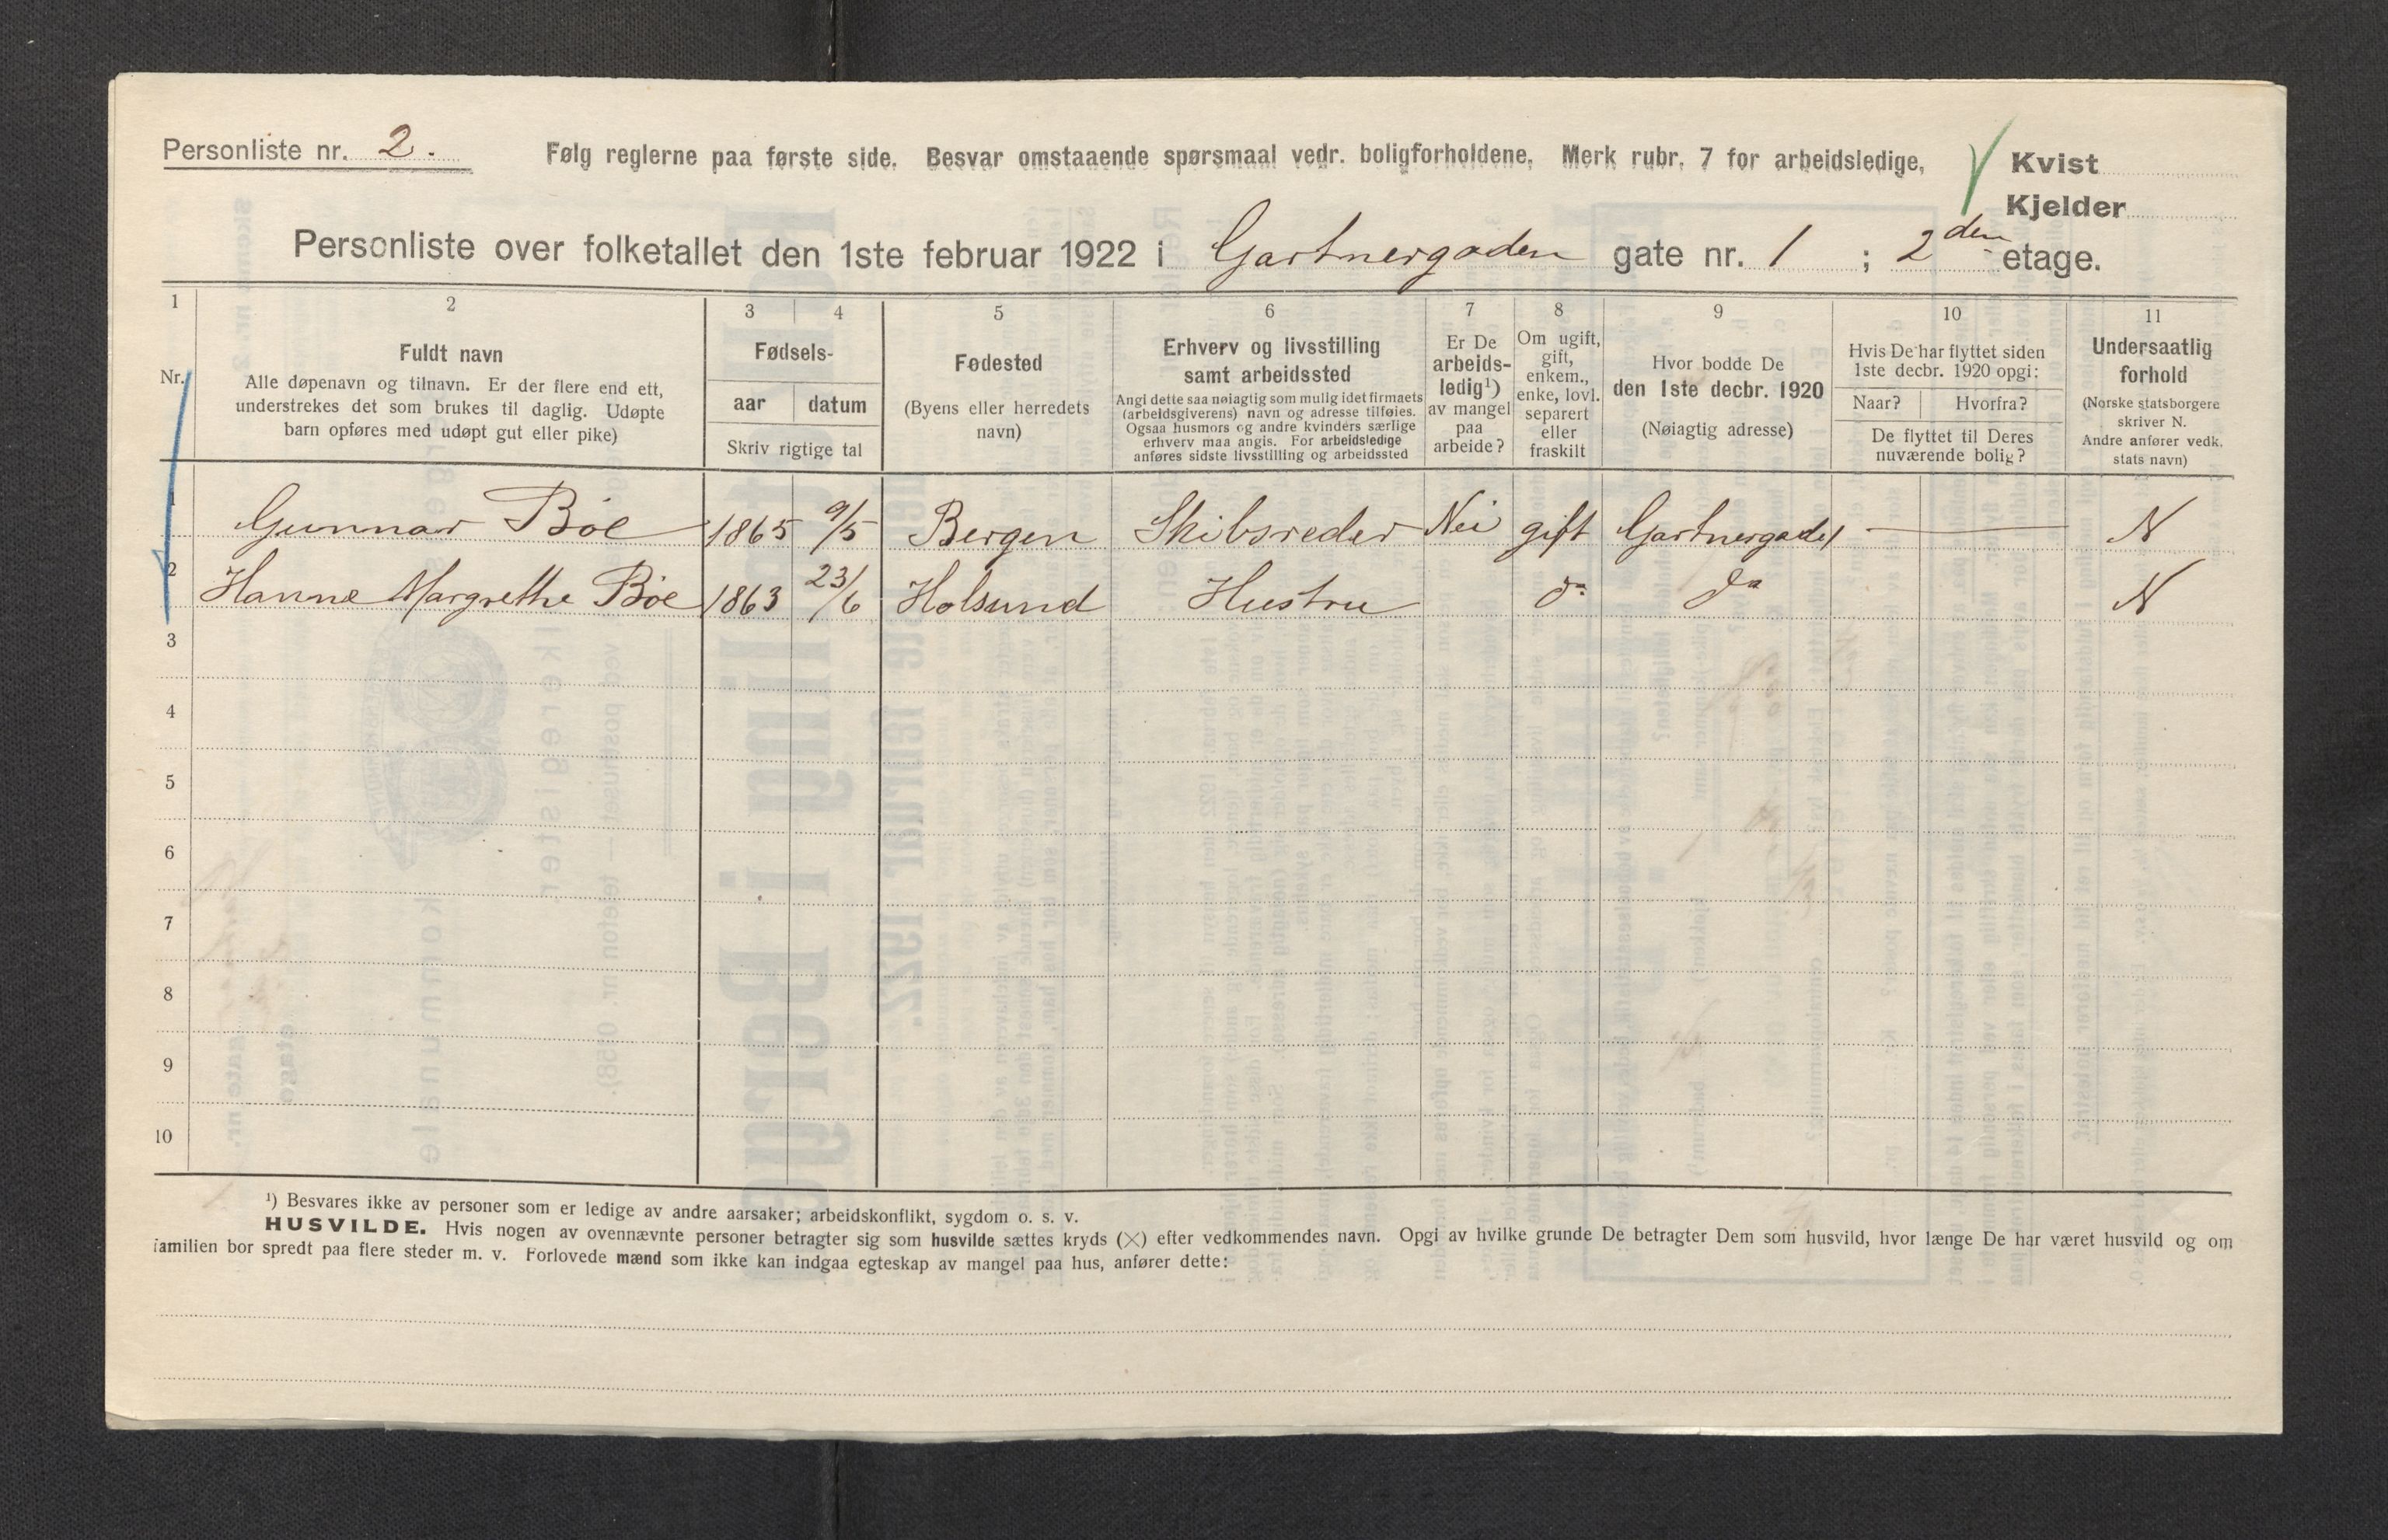 Personliste nr. 2.
Følg reglerne paa første side. Besvar omstaaende spørsmaal vedr. boligforholdene. Merk rubr. 7 for arbeidsledige,
Kvist
Kjelder
Personliste over folketallet den 1ste februar 1922 i Gartnergaden gate nr. 1 ; 2den etage.
1 2 3 4 5 6 7 8 9 10 11
Nr.
Fuldt navn
Alle døpenavn og tilnavn. Er der flere end ett,
understrekes det som brukes til daglig. Udøpte
barn opføres med udøpt gut eller pike)
Fødsels-
aar datum
Skriv rigtige tal
Fødested
(Byens eller herredets
navn)
Erhverv og livsstilling
samt arbeidssted
Angi dette saa nøiagtig som mulig idet firmaets
(arbeidsgiverens) navn og adresse tilføies.
Ogsaa husmors og andre kvinders særlige
erhverv maa angis. For arbeidsledige
anføres sidste livsstilling og arbeidssted
Er De
arbeids-
ledig¹)
av mangel
paa
arbeide?
Om ugift,
gift,
enkem.,
enke, lovl.
separert
eller
fraskilt
Hvor bodde De
den 1ste decbr. 1920
(Nøiagtig adresse)
Hvis De har flyttet siden
1ste decbr. 1920 opgi:
Naar? Hvorfra?
De flyttet til Deres
nuværende bolig?
Undersaatlig
forhold
(Norske statsborgere
skriver N.
Andre anfører vedk.
stats navn)
1 Gunnar Böe 1865 9/5 Bergen Skibsreder Nei gift Gartnergade 1 — N
2 Hanne Margrethe Böe 1863 23/6 Holsund Hustru do do N
3
4
5
6
7
8
9
10
¹) Besvares ikke av personer som er ledige av andre aarsaker; arbeidskonflikt, sygdom o. s. v.
HUSVILDE. Hvis nogen av ovennævnte personer betragter sig som husvilde sættes kryds (×) efter vedkommendes navn. Opgi av hvilke grunde De betragter Dem som husvild, hvor længe De har været husvild og om
familien bor spredt paa flere steder m. v. Forlovede mænd som ikke kan indgaa egteskap av mangel paa hus, anfører dette: